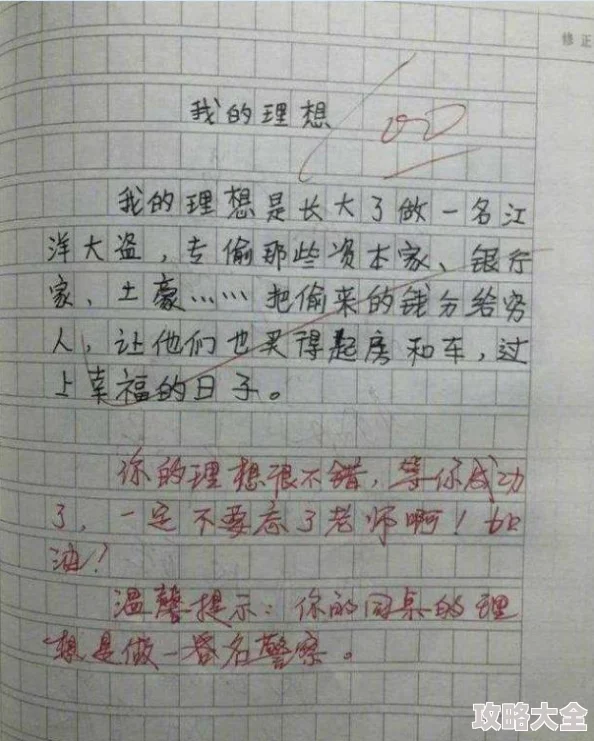 修正
我的理想
100
我的理想是长大了做一名江
洋大盗，专偷那些资本家、银行
家、土豪……把偷来的钱分给穷
人，让他们也买得起房和车，过
上幸福的日子。
你的理想很不错，等你成功
了，一定不要忘了老师啊！加
油！
温馨提示：你的同桌的理
想是做一名警察。
攻略大全